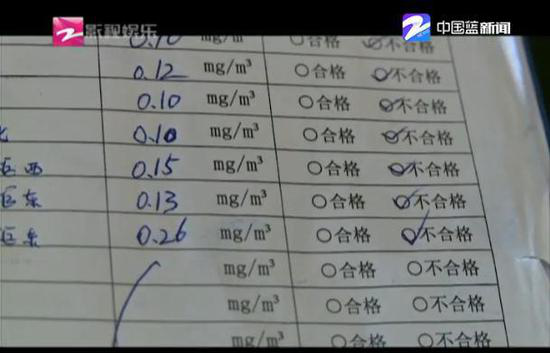 影视娱乐 中国蓝新闻
0.10 mg/m³ ○合格 ○不合格
0.12 mg/m³ ○合格 ○不合格
0.10 mg/m³ ○合格 ○不合格
0.10 mg/m³ ○合格 ○不合格
西 0.15 mg/m³ ○合格 ○不合格
东 0.13 mg/m³ ○合格 ○不合格
东 0.26 mg/m³ ○合格 ○不合格
mg/m³ ○合格 ○不合格
mg/m³ ○合格 ○不合格
mg/m³ ○合格 ○不合格